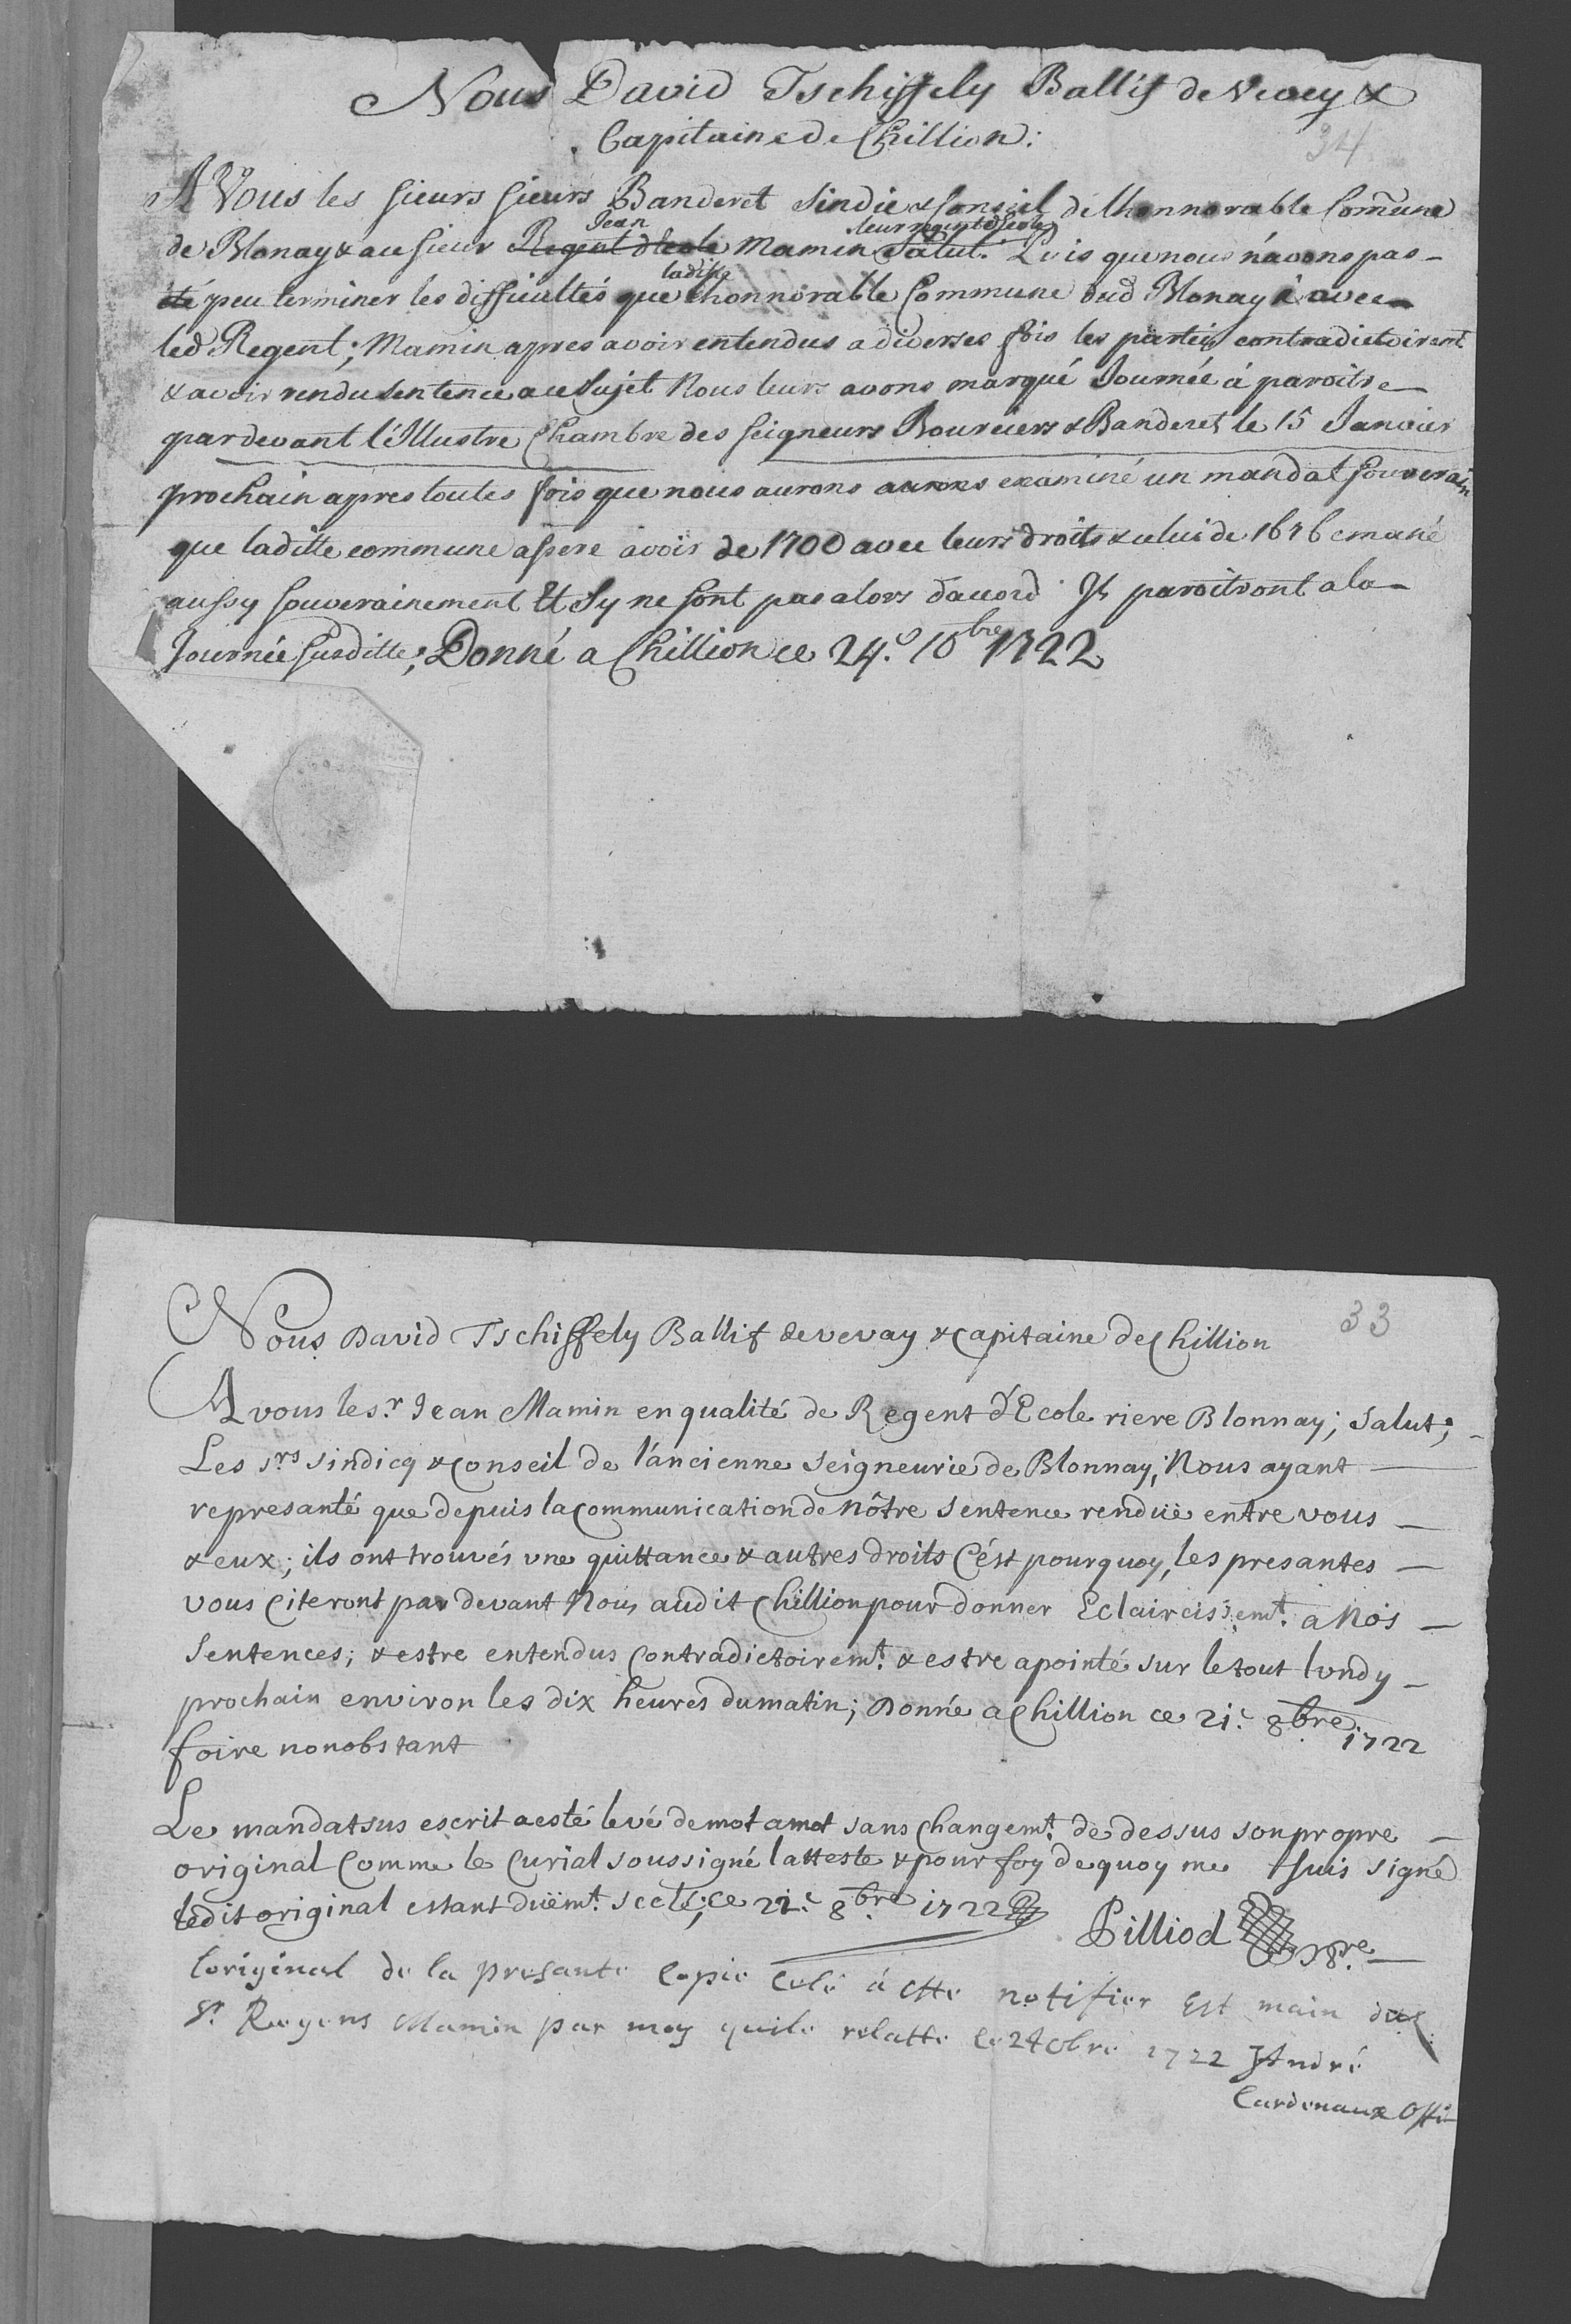 Nous David Tschiffely Ballif de Vevey &
Capitaine de Chillion:
34
A Vous les sieurs sieurs Banderet Sindic & Conseil de lhonnorable Comune
de Blonay & au sieur Regent decole Jean Mamin leur regent decole Salut. Puis que nous n'avons pas
été peu terminer les difficultés que laditte honnorable Commune dud Blonay à avec
led Regent; Mamin apres avoir entendus a diverses fois les parties contradictoirem.t
& avoir rendu sentence a ce sujet Nous leurs avons marqué Journée à paroitre
par devant l'Illustre Chambre des Seigneurs Bourciers & Banderet le 15 Janvier
prochain apres toutes fois que nous aurons aurons examiné un mandat souverain
que laditte commune aspere avoir de 1700 avec leurs droits & celui de 1676 emané
aussy souverainement Et Sy ne sont pas alors d'acord Ils paroitront a la
Journée susditte; Donné a Chillion ce 24.e 10bre 1722
33
Nous David Tschiffely Ballif de vevay & capitaine de Chillion
A vous le s.r Jean Mamin en qualité de Regent d'Ecole riere Blonnay; Salut;
Les s.rs sindicq & Conseil de l'ancienne Seigneurie de Blonnay, Nous ayant
represanté que depuis la communication de Nôtre Sentence rendüe entre vous
& eux; ils ont trouvés vne quittance & autres droits C'ést pourquoy, les presantes
vous Citeront par devant Nous audit Chillion pour donner Eclaircissem.t a Nos
Sentences; & estre entendus Contradictoirem.t & estre apointé sur le tout lundy
prochain environ les dix heures du matin; Donné a Chillion ce 21.e 8bre 1722
foire nonobstant
Le mandat sus escrit a esté levé de mot a mot sans changem.t de dessus son propre
original Comme le Curial soussigné l'atteste & pour foy de quoy me suis signé
ledit original estant düem.t scelé; ce 21.e 8bre 1722
Pilliod
Loriginal de la presante Copie Celé à etté notifier Est main du
S.r Regens Mamin par moy quile relatte Le 24 obre 1722 J André
Cardenaux Offi